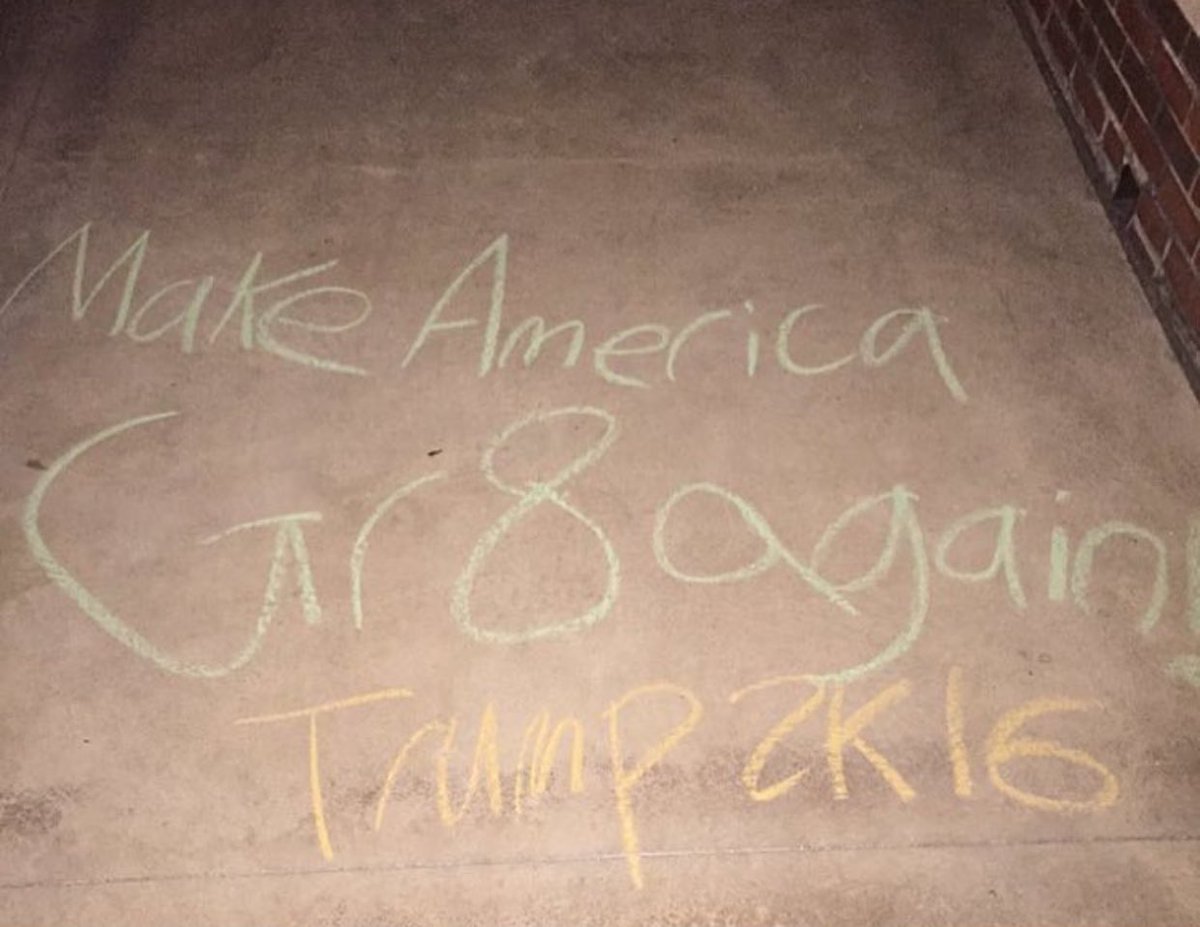 Make America
Gr8 again!
Trump 2K16